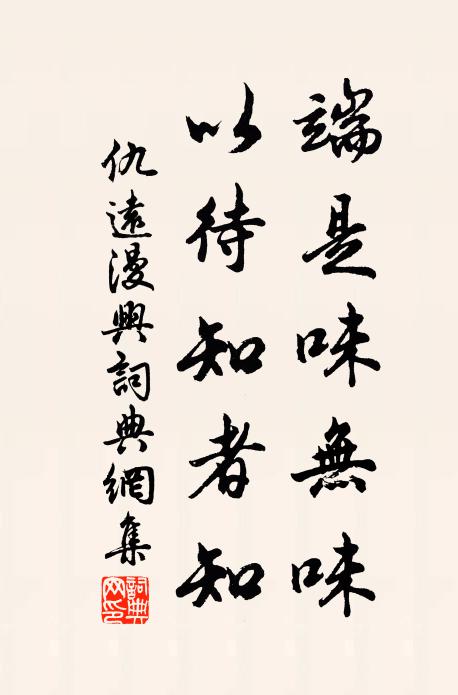 端是味無味
以待知者知
仇遠漫興詞典網集
詞典網印